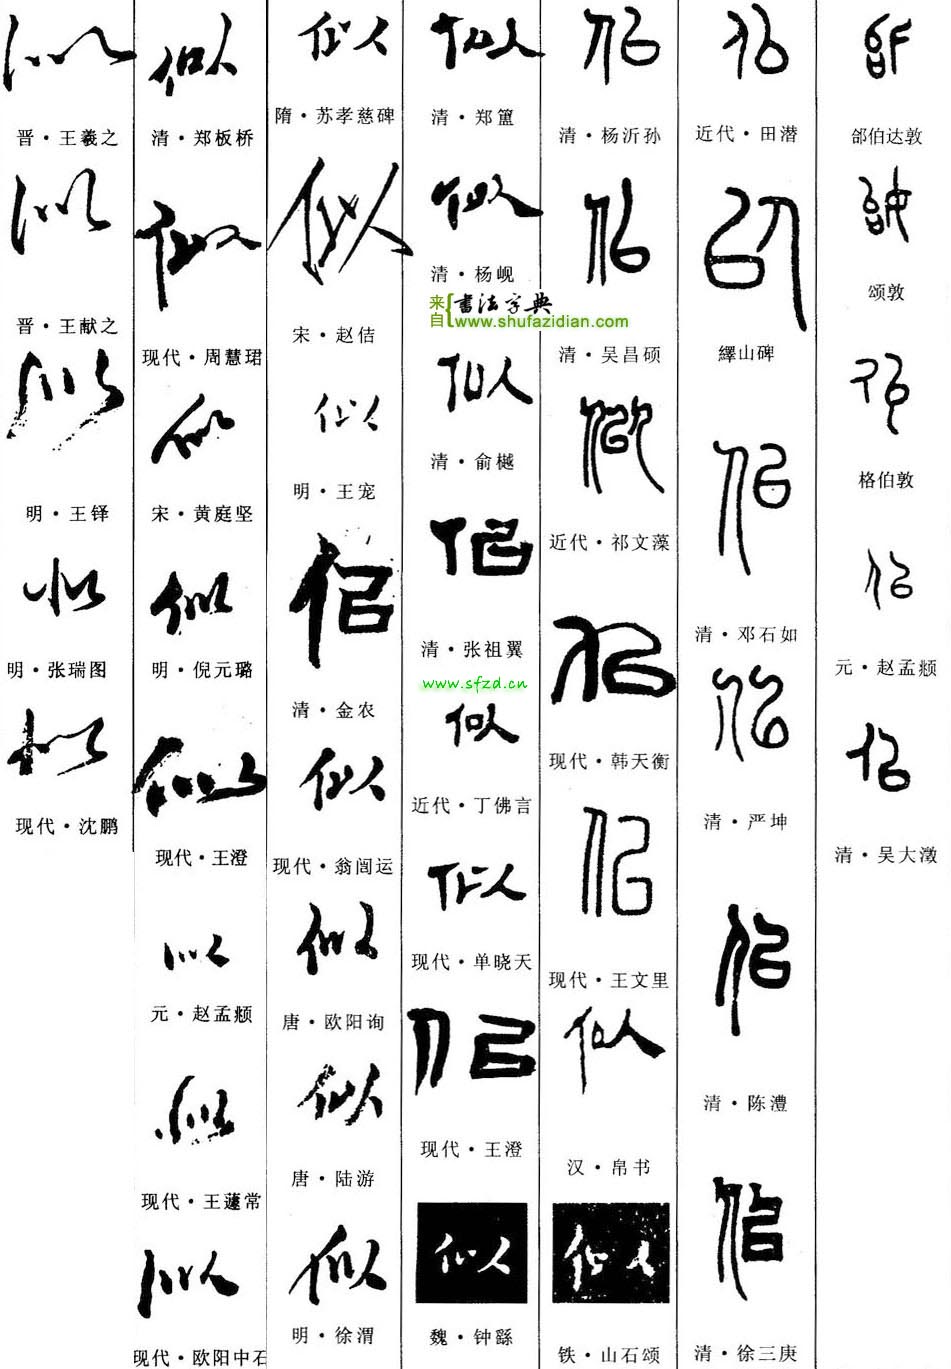 似
晋·王羲之
似
晋·王献之
似
明·王铎
似
明·张瑞图
似
现代·沈鹏
似
清·郑板桥
似
现代·周慧珺
似
宋·黄庭坚
似
明·倪元璐
似
现代·王澄
似
元·赵孟頫
似
现代·王蘧常
似
现代·欧阳中石
似
隋·苏孝慈碑
似
宋·赵佶
似
明·王宠
似
清·金农
似
现代·翁闿运
似
唐·欧阳询
似
唐·陆游
似
明·徐渭
似
清·郑簠
似
清·杨岘
来自{書法字典
www.shufazidian.com
似
清·俞樾
似
清·张祖翼
www.sfzd.cn
似
近代·丁佛言
似
现代·单晓天
似
现代·王澄
似
魏·钟繇
似
清·杨沂孙
似
清·吴昌硕
似
近代·祁文藻
似
现代·韩天衡
似
现代·王文里
似
汉·帛书
似
铁·山石颂
似
近代·田潜
似
繹山碑
似
清·邓石如
似
清·严坤
似
清·陈澧
似
清·徐三庚
似
郃伯达敦
似
颂敦
似
格伯敦
似
元·赵孟頫
似
清·吴大澂